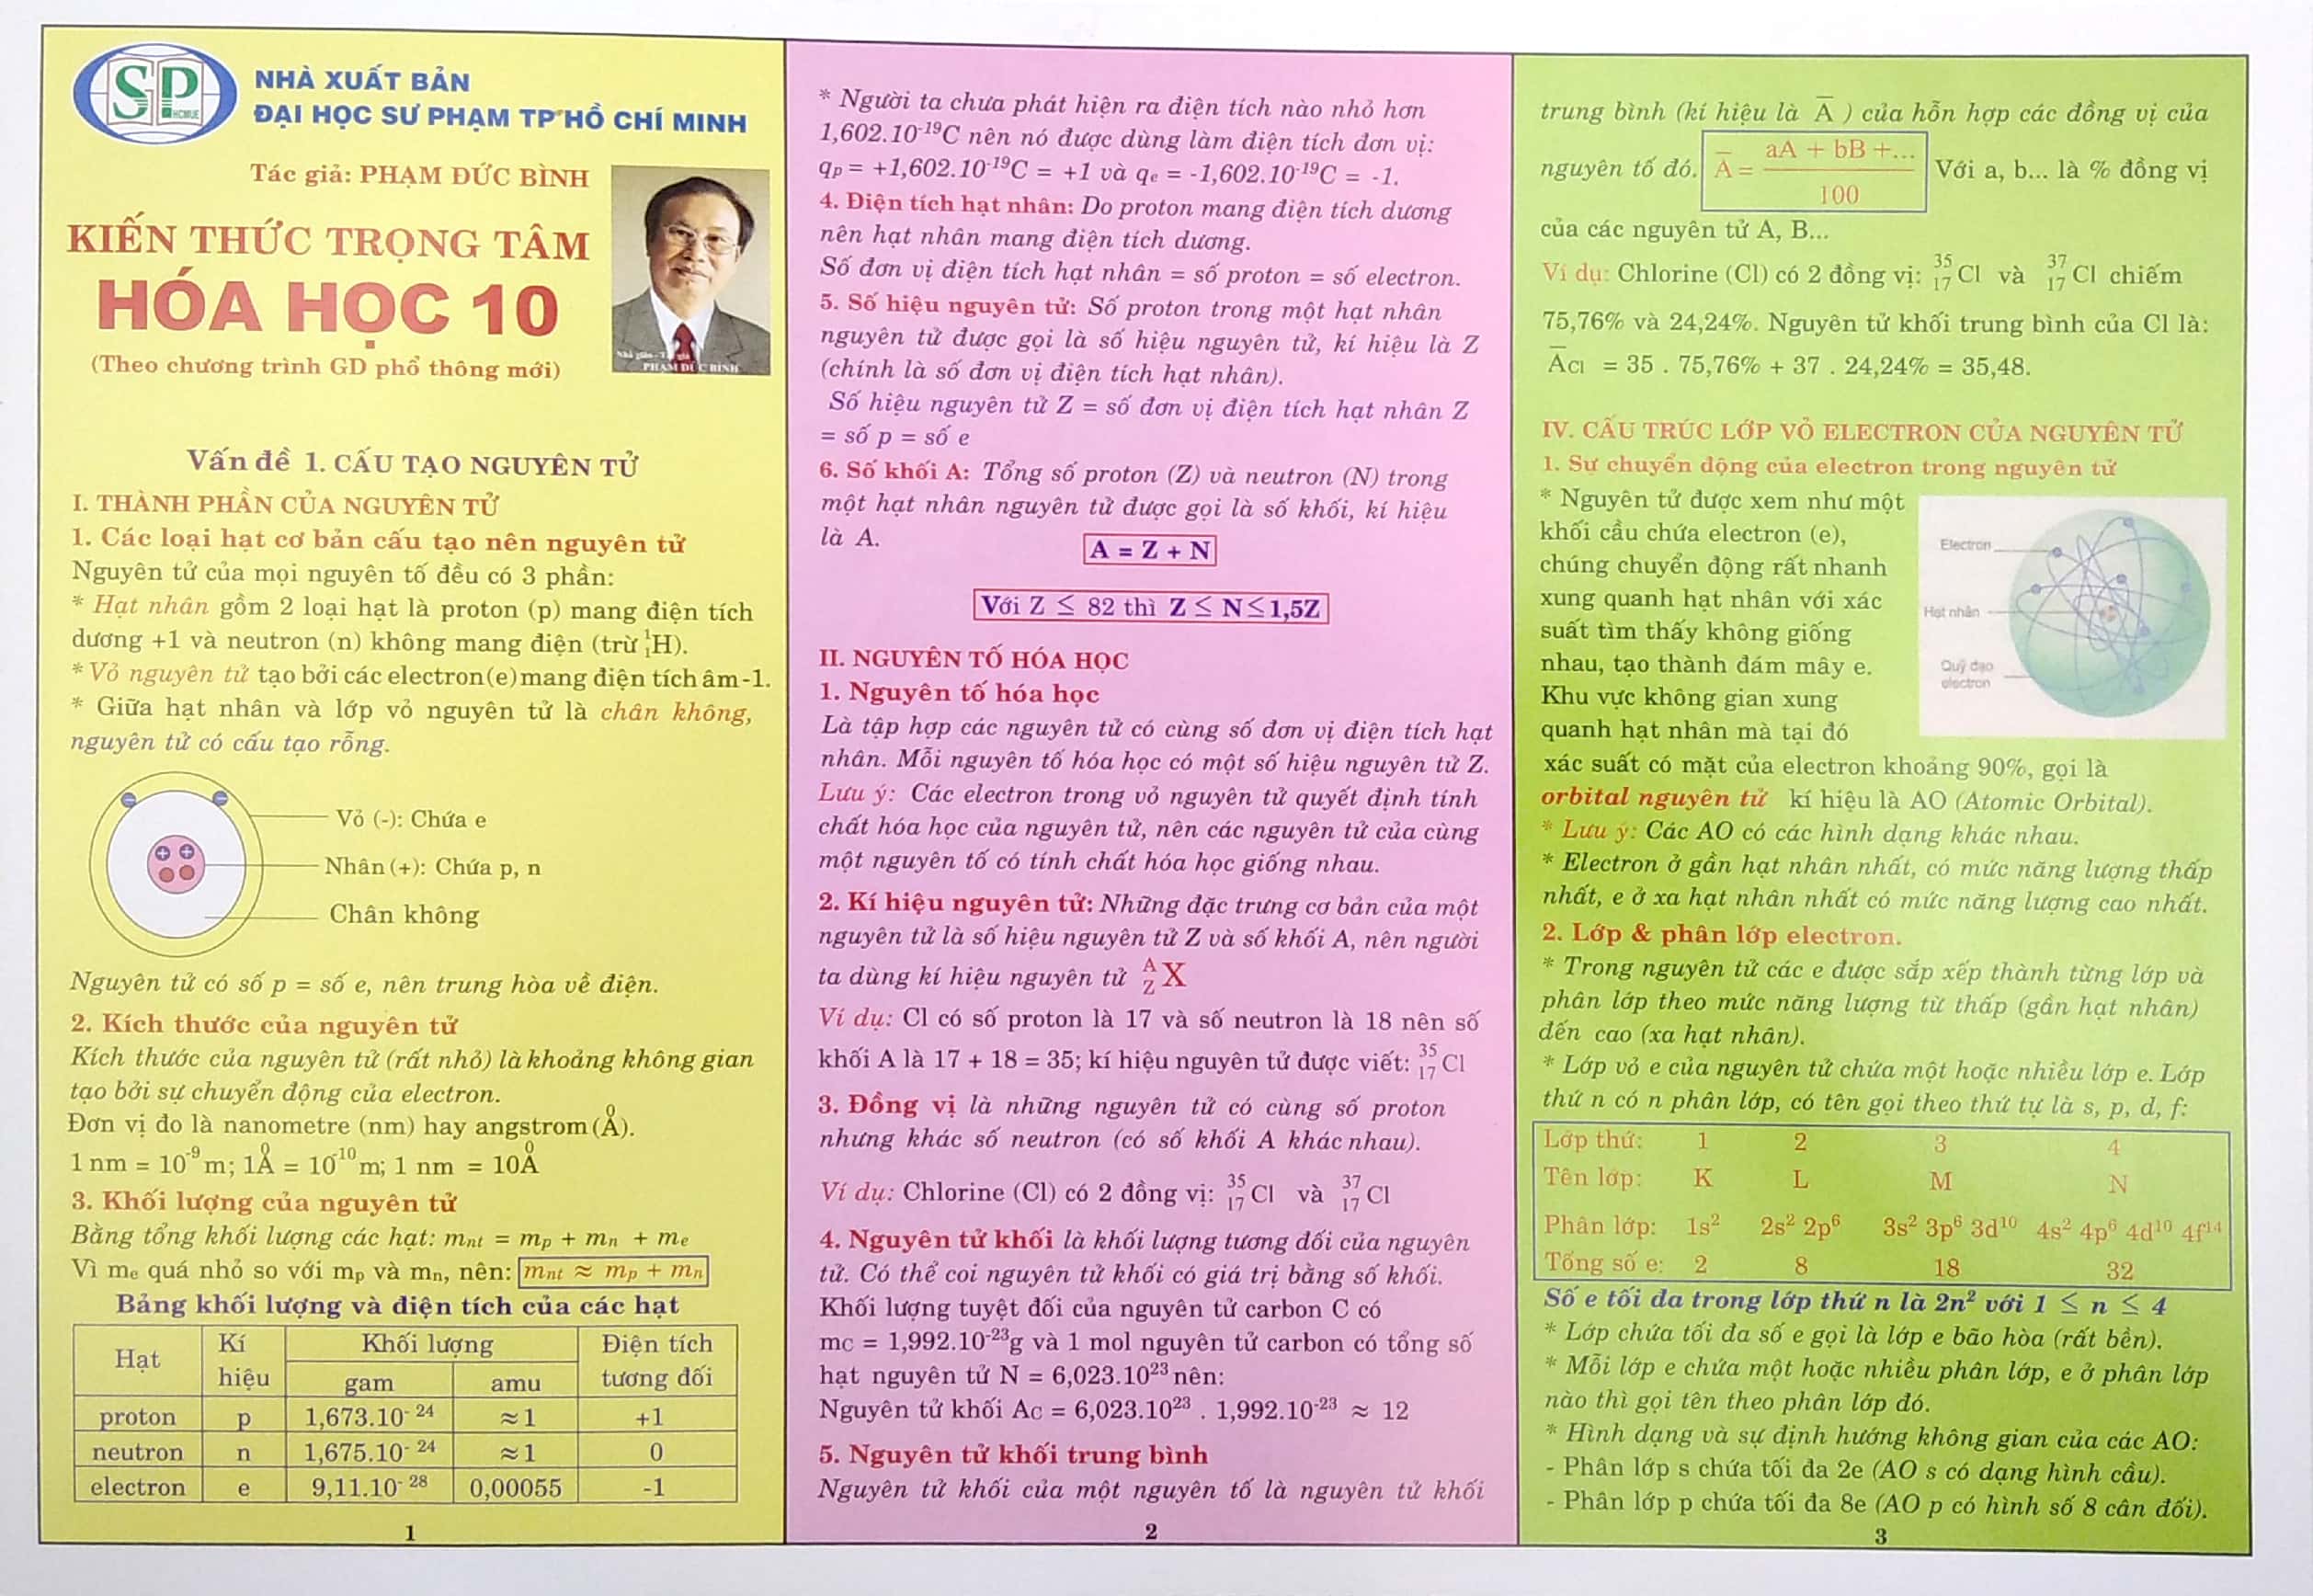 SP
HCMUE
NHÀ XUẤT BẢN
ĐẠI HỌC SƯ PHẠM TP HỒ CHÍ MINH
Tác giả: PHẠM ĐỨC BÌNH
KIẾN THỨC TRỌNG TÂM
HÓA HỌC 10
(Theo chương trình GD phổ thông mới)
PHẠM ĐỨC BÌNH
Vấn đề 1. CẤU TẠO NGUYÊN TỬ
I. THÀNH PHẦN CỦA NGUYÊN TỬ
1. Các loại hạt cơ bản cấu tạo nên nguyên tử
Nguyên tử của mọi nguyên tố đều có 3 phần:
* Hạt nhân gồm 2 loại hạt là proton (p) mang điện tích
dương +1 và neutron (n) không mang điện (trừ ¹₁H).
* Vỏ nguyên tử tạo bởi các electron(e) mang điện tích âm -1.
* Giữa hạt nhân và lớp vỏ nguyên tử là chân không,
nguyên tử có cấu tạo rỗng.
Vỏ (-): Chứa e
Nhân (+): Chứa p, n
Chân không
Nguyên tử có số p = số e, nên trung hòa về điện.
2. Kích thước của nguyên tử
Kích thước của nguyên tử (rất nhỏ) là khoảng không gian
tạo bởi sự chuyển động của electron.
Đơn vị đo là nanometre (nm) hay angstrom (Å).
1 nm = 10⁻⁹ m; 1Å = 10⁻¹⁰ m; 1 nm = 10Å
3. Khối lượng của nguyên tử
Bằng tổng khối lượng các hạt: mₙₜ = mₚ + mₙ + mₑ
Vì mₑ quá nhỏ so với mₚ và mₙ, nên: mₙₜ ≈ mₚ + mₙ
Bảng khối lượng và điện tích của các hạt
Hạt Kí hiệu Khối lượng Điện tích tương đối
gam amu
proton p 1,673.10⁻²⁴ ≈1 +1
neutron n 1,675.10⁻²⁴ ≈1 0
electron e 9,11.10⁻²⁸ 0,00055 -1
1
* Người ta chưa phát hiện ra điện tích nào nhỏ hơn
1,602.10⁻¹⁹C nên nó được dùng làm điện tích đơn vị:
qₚ = +1,602.10⁻¹⁹C = +1 và qₑ = -1,602.10⁻¹⁹C = -1.
4. Điện tích hạt nhân: Do proton mang điện tích dương
nên hạt nhân mang điện tích dương.
Số đơn vị điện tích hạt nhân = số proton = số electron.
5. Số hiệu nguyên tử: Số proton trong một hạt nhân
nguyên tử được gọi là số hiệu nguyên tử, kí hiệu là Z
(chính là số đơn vị điện tích hạt nhân).
Số hiệu nguyên tử Z = số đơn vị điện tích hạt nhân Z
= số p = số e
6. Số khối A: Tổng số proton (Z) và neutron (N) trong
một hạt nhân nguyên tử được gọi là số khối, kí hiệu
là A.
A = Z + N
Với Z ≤ 82 thì Z ≤ N ≤ 1,5Z
II. NGUYÊN TỐ HÓA HỌC
1. Nguyên tố hóa học
Là tập hợp các nguyên tử có cùng số đơn vị điện tích hạt
nhân. Mỗi nguyên tố hóa học có một số hiệu nguyên tử Z.
Lưu ý: Các electron trong vỏ nguyên tử quyết định tính
chất hóa học của nguyên tử, nên các nguyên tử của cùng
một nguyên tố có tính chất hóa học giống nhau.
2. Kí hiệu nguyên tử: Những đặc trưng cơ bản của một
nguyên tử là số hiệu nguyên tử Z và số khối A, nên người
ta dùng kí hiệu nguyên tử ᴬ_Z X
Ví dụ: Cl có số proton là 17 và số neutron là 18 nên số
khối A là 17 + 18 = 35; kí hiệu nguyên tử được viết: ³⁵₁₇Cl
3. Đồng vị là những nguyên tử có cùng số proton
nhưng khác số neutron (có số khối A khác nhau).
Ví dụ: Chlorine (Cl) có 2 đồng vị: ³⁵₁₇Cl và ³⁷₁₇Cl
4. Nguyên tử khối là khối lượng tương đối của nguyên
tử. Có thể coi nguyên tử khối có giá trị bằng số khối.
Khối lượng tuyệt đối của nguyên tử carbon C có
mC = 1,992.10⁻²³g và 1 mol nguyên tử carbon có tổng số
hạt nguyên tử N = 6,023.10²³ nên:
Nguyên tử khối AC = 6,023.10²³ . 1,992.10⁻²³ ≈ 12
5. Nguyên tử khối trung bình
Nguyên tử khối của một nguyên tố là nguyên tử khối
2
trung bình (kí hiệu là A̅ ) của hỗn hợp các đồng vị của
nguyên tố đó. A̅ = (aA + bB +...)/100 Với a, b... là % đồng vị
của các nguyên tử A, B...
Ví dụ: Chlorine (Cl) có 2 đồng vị: ³⁵₁₇Cl và ³⁷₁₇Cl chiếm
75,76% và 24,24%. Nguyên tử khối trung bình của Cl là:
A̅Cl = 35 . 75,76% + 37 . 24,24% = 35,48.
IV. CẤU TRÚC LỚP VỎ ELECTRON CỦA NGUYÊN TỬ
1. Sự chuyển động của electron trong nguyên tử
* Nguyên tử được xem như một
khối cầu chứa electron (e),
chúng chuyển động rất nhanh
xung quanh hạt nhân với xác
suất tìm thấy không giống
nhau, tạo thành đám mây e.
Khu vực không gian xung
quanh hạt nhân mà tại đó
Electron
Hạt nhân
Quỹ đạo
electron
xác suất có mặt của electron khoảng 90%, gọi là
orbital nguyên tử kí hiệu là AO (Atomic Orbital).
* Lưu ý: Các AO có các hình dạng khác nhau.
* Electron ở gần hạt nhân nhất, có mức năng lượng thấp
nhất, e ở xa hạt nhân nhất có mức năng lượng cao nhất.
2. Lớp & phân lớp electron.
* Trong nguyên tử các e được sắp xếp thành từng lớp và
phân lớp theo mức năng lượng từ thấp (gần hạt nhân)
đến cao (xa hạt nhân).
* Lớp vỏ e của nguyên tử chứa một hoặc nhiều lớp e. Lớp
thứ n có n phân lớp, có tên gọi theo thứ tự là s, p, d, f:
Lớp thứ: 1 2 3 4
Tên lớp: K L M N
Phân lớp: 1s² 2s² 2p⁶ 3s² 3p⁶ 3d¹⁰ 4s² 4p⁶ 4d¹⁰ 4f¹⁴
Tổng số e: 2 8 18 32
Số e tối đa trong lớp thứ n là 2n² với 1 ≤ n ≤ 4
* Lớp chứa tối đa số e gọi là lớp e bão hòa (rất bền).
* Mỗi lớp e chứa một hoặc nhiều phân lớp, e ở phân lớp
nào thì gọi tên theo phân lớp đó.
* Hình dạng và sự định hướng không gian của các AO:
- Phân lớp s chứa tối đa 2e (AO s có dạng hình cầu).
- Phân lớp p chứa tối đa 8e (AO p có hình số 8 cân đối).
3